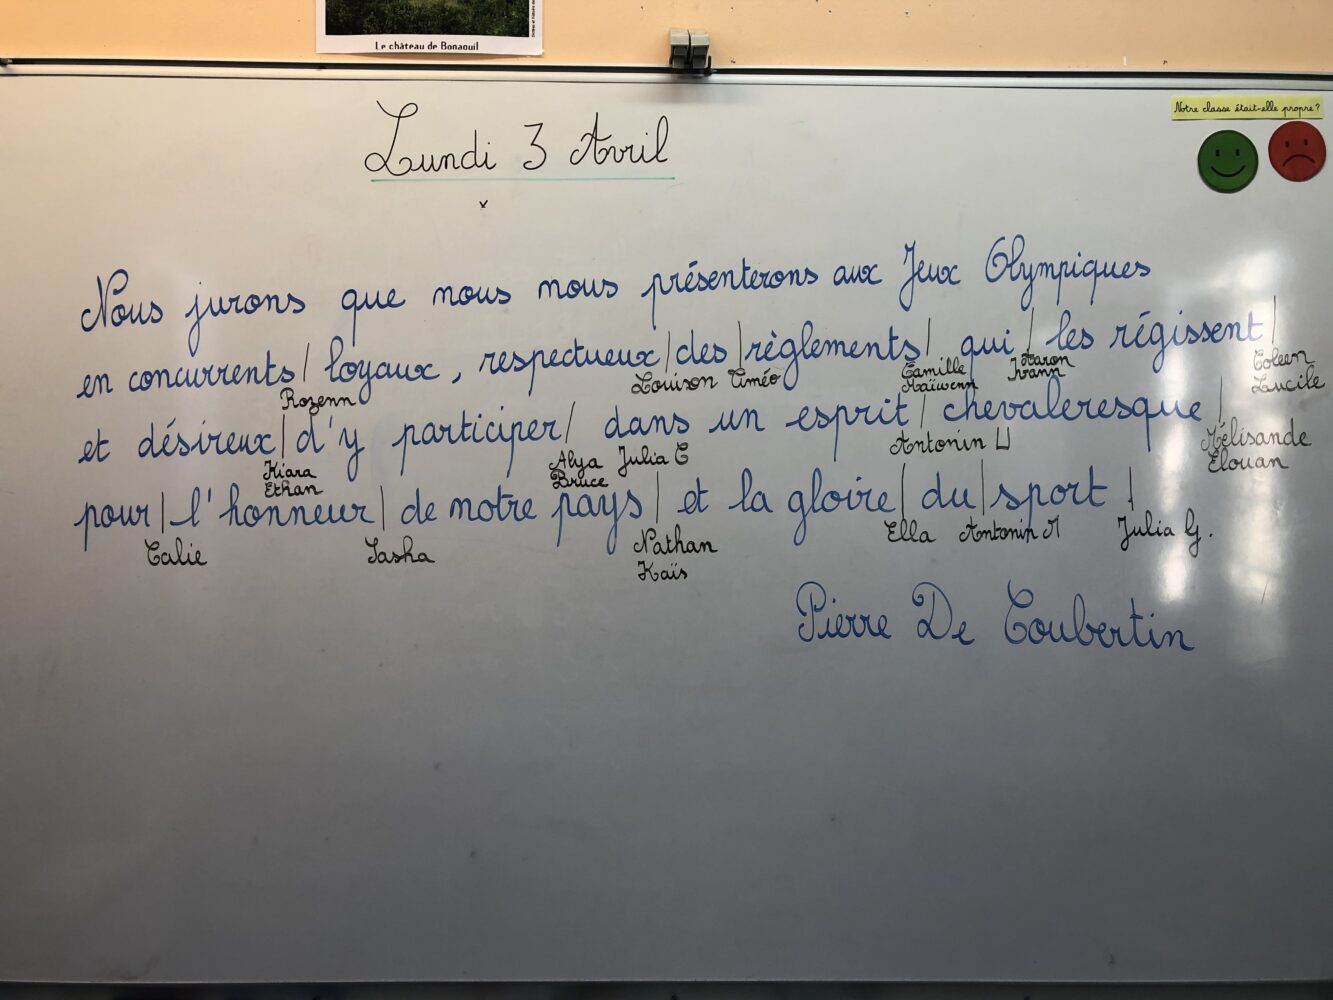 Le château de Bonaguil
Notre classe était-elle propre ?
Lundi 3 Avril
x
Nous jurons que nous nous présenterons aux Jeux Olympiques
en concurrents / loyaux, respectueux / des / règlements / qui / les régissent /
Rozenn Louison Timéo Camille Maïwenn Aaron Ivann Coleen Lucile
et désireux / d'y participer / dans un esprit / chevaleresque /
Kiara Ethan Alya Bruce Julia C Antonin U Mélisande Elouan
pour / l'honneur / de notre pays / et la gloire / du / sport /
Calie Sasha Nathan Kaïs Ella Antonin M Julia G.
Pierre De Coubertin